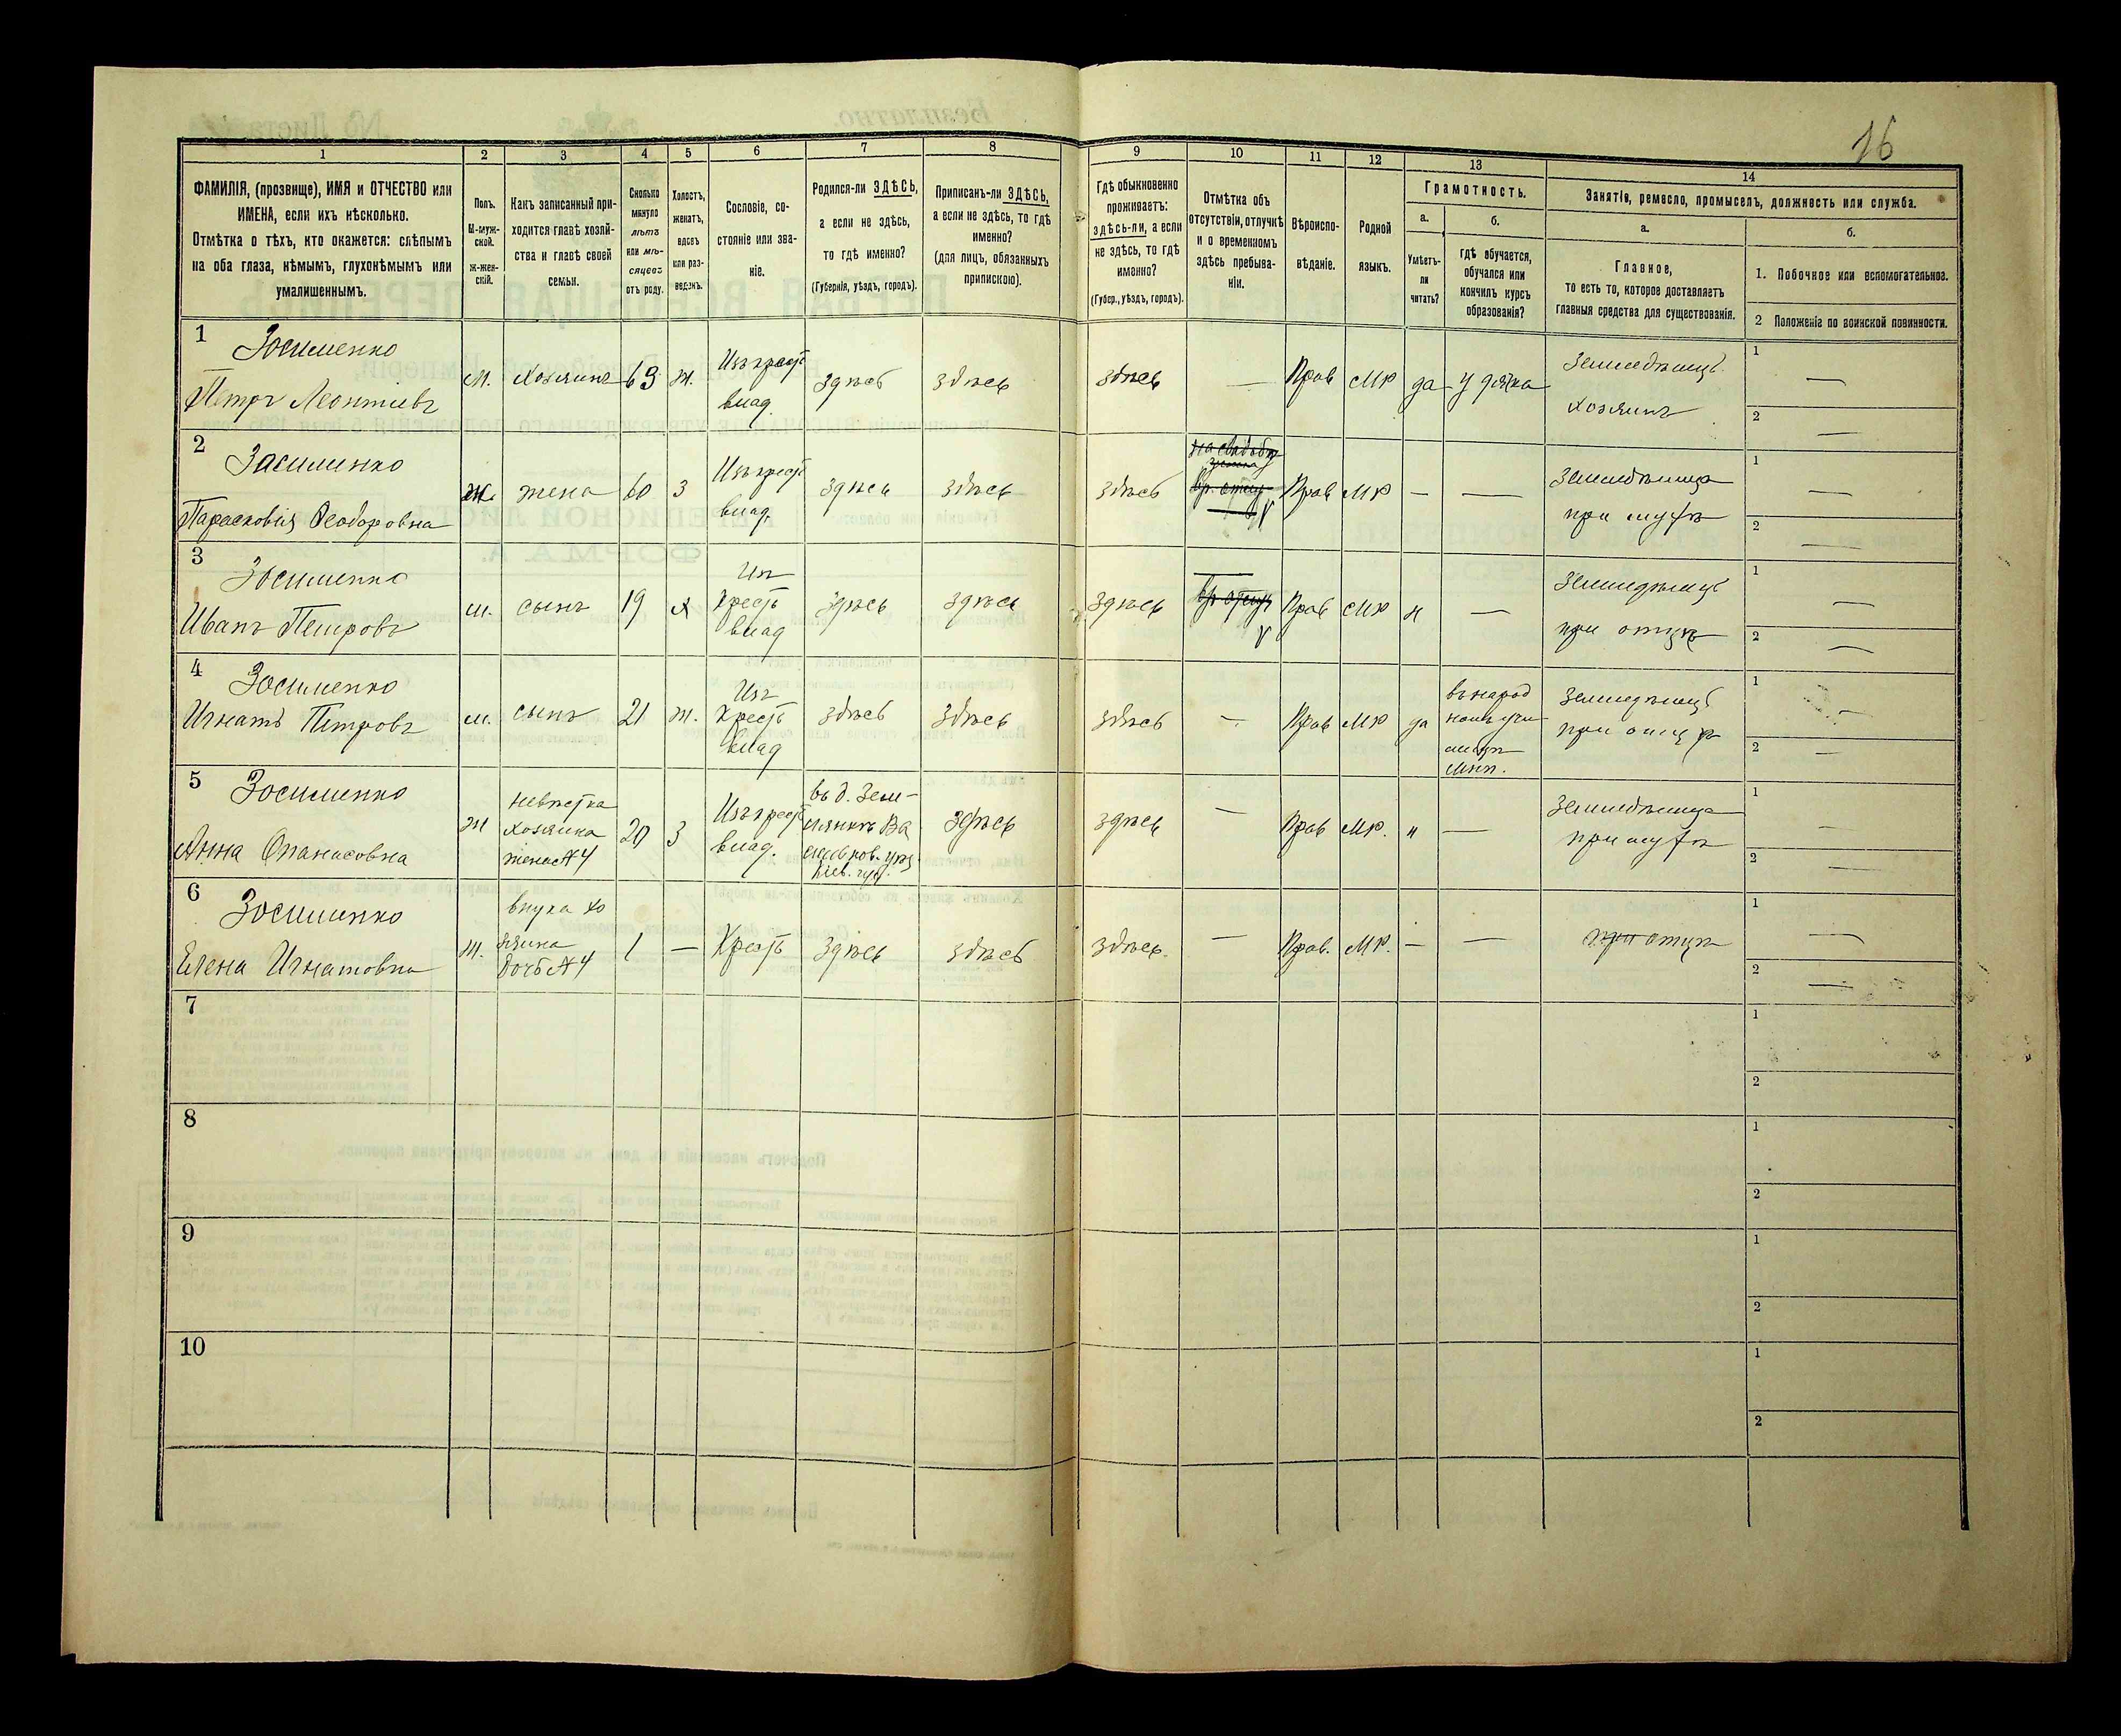 16
1 2 3 4 5 6 7 8 9 10 11 12 13 14
ФАМИЛІЯ, (прозвище), ИМЯ и ОТЧЕСТВО или
ИМЕНА, если ихъ нѣсколько.
Отмѣтка о тѣхъ, кто окажется: слѣпымъ
на оба глаза, нѣмымъ, глухонѣмымъ или
умалишеннымъ.
Полъ.
М-муж-
ской.
Ж-жен-
скій.
Какъ записанный при-
ходится главѣ хозяй-
ства и главѣ своей
семьи.
Сколько
минуло
лѣтъ
или мѣ-
сяцевъ
отъ роду.
Холостъ,
женатъ,
вдовъ
или раз-
веденъ.
Сословіе, со-
стояніе или зва-
ніе.
Родился-ли ЗДѢСЬ,
а если не здѣсь,
то гдѣ именно?
(Губернія, уѣздъ, городъ).
Приписанъ-ли ЗДѢСЬ,
а если не здѣсь, то гдѣ
именно?
(для лицъ, обязанныхъ
припискою).
Гдѣ обыкновенно
проживаетъ:
здѣсь-ли, а если
не здѣсь, то гдѣ
именно?
(Губер., уѣздъ, городъ).
Отмѣтка объ
отсутствіи, отлучкѣ
и о временномъ
здѣсь пребыва-
ніи.
Вѣроиспо-
вѣданіе.
Родной
языкъ.
Грамотность.
а.
Умѣетъ-
ли
читать?
б.
гдѣ обучается,
обучался или
кончилъ курсъ
образованія?
Занятіе, ремесло, промыселъ, должность или служба.
а.
Главное,
то есть то, которое доставляетъ
главныя средства для существованія.
б.
1. Побочное или вспомогательное.
2 Положеніе по воинской повинности.
1
Зосименко
Петръ Леонтіевъ
м.
Хозяинъ
69
ж.
Изъ крест
влад.
здѣсь
здѣсь
здѣсь
—
Прав
МР
да
у дячка
Земледѣлецъ
хозяинъ
1 —
2 —
2
Засименко
Парасковія Ѳеодоровна
ж.
жена
60
З
Изъ крест
влад.
здѣсь
здѣсь
здѣсь
на свадьбѣ
Прав
МР
—
—
Земледѣлица
при мужѣ
1 —
2 —
3
Зосименко
Иванъ Петровъ
м.
сынъ
19
х
Изъ
крест
влад
здѣсь
здѣсь
здѣсь
Прав
МР
н
—
Земледѣлецъ
при отцѣ
1 —
2 —
4
Зосименко
Игнатъ Петровъ
м.
сынъ
21
ж.
Изъ
крест
влад
здѣсь
здѣсь
здѣсь
—
Прав
МР
да
въ народ
номъ учи
лищѣ
Мнп.
Земледѣлецъ
при отцѣ
1 —
2 —
5
Зосименко
Анна Опанасовна
ж
невѣстка
хозяина
жена № 4
20
З
Изъ крест
влад.
въ д. Зем-
лянкѣ Ва
сильков. уѣз.
Кіев. губ.
здѣсь
здѣсь
—
Прав
МР.
н
—
Земледѣлица
при мужѣ
1 —
2 —
6
Зосименко
Елена Игнатовна
ж.
внука хо
зяина
дочь № 4
1
—
Крест
здѣсь
здѣсь
здѣсь.
—
Прав.
МР.
—
—
при отцѣ
1 —
2 —
7
1
2
8
1
2
9
1
2
10
1
2